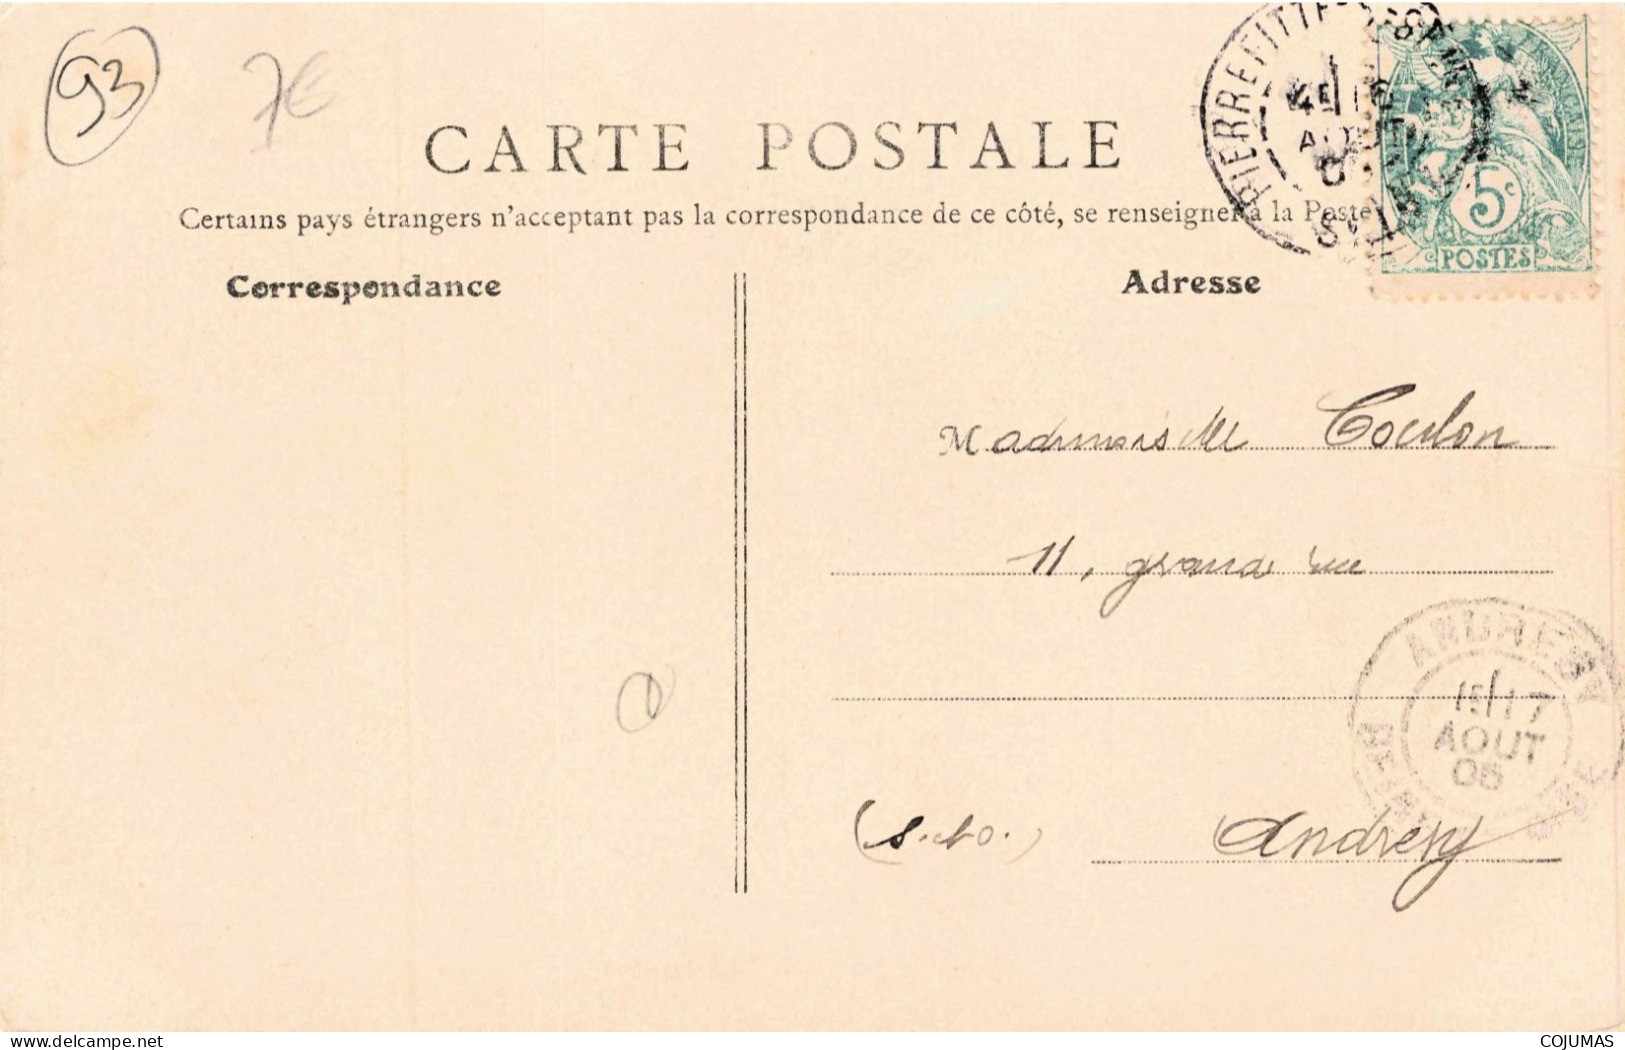 93
7€
CARTE POSTALE
Certains pays étrangers n'acceptant pas la correspondance de ce côté, se renseigner à la Poste
Correspondance
Adresse
PIERREFITTE
AOUT
5c
POSTES
Mademoiselle Coulon
11, grande rue
ANDRESY
17
AOUT
05
(S.&O.)
Andresy
delcampe.net
COJUMAS